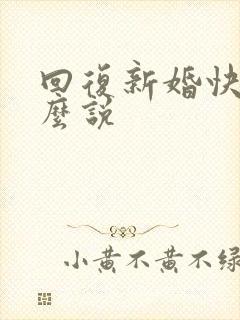 回復新婚快
麼說
小黃不黃不綠